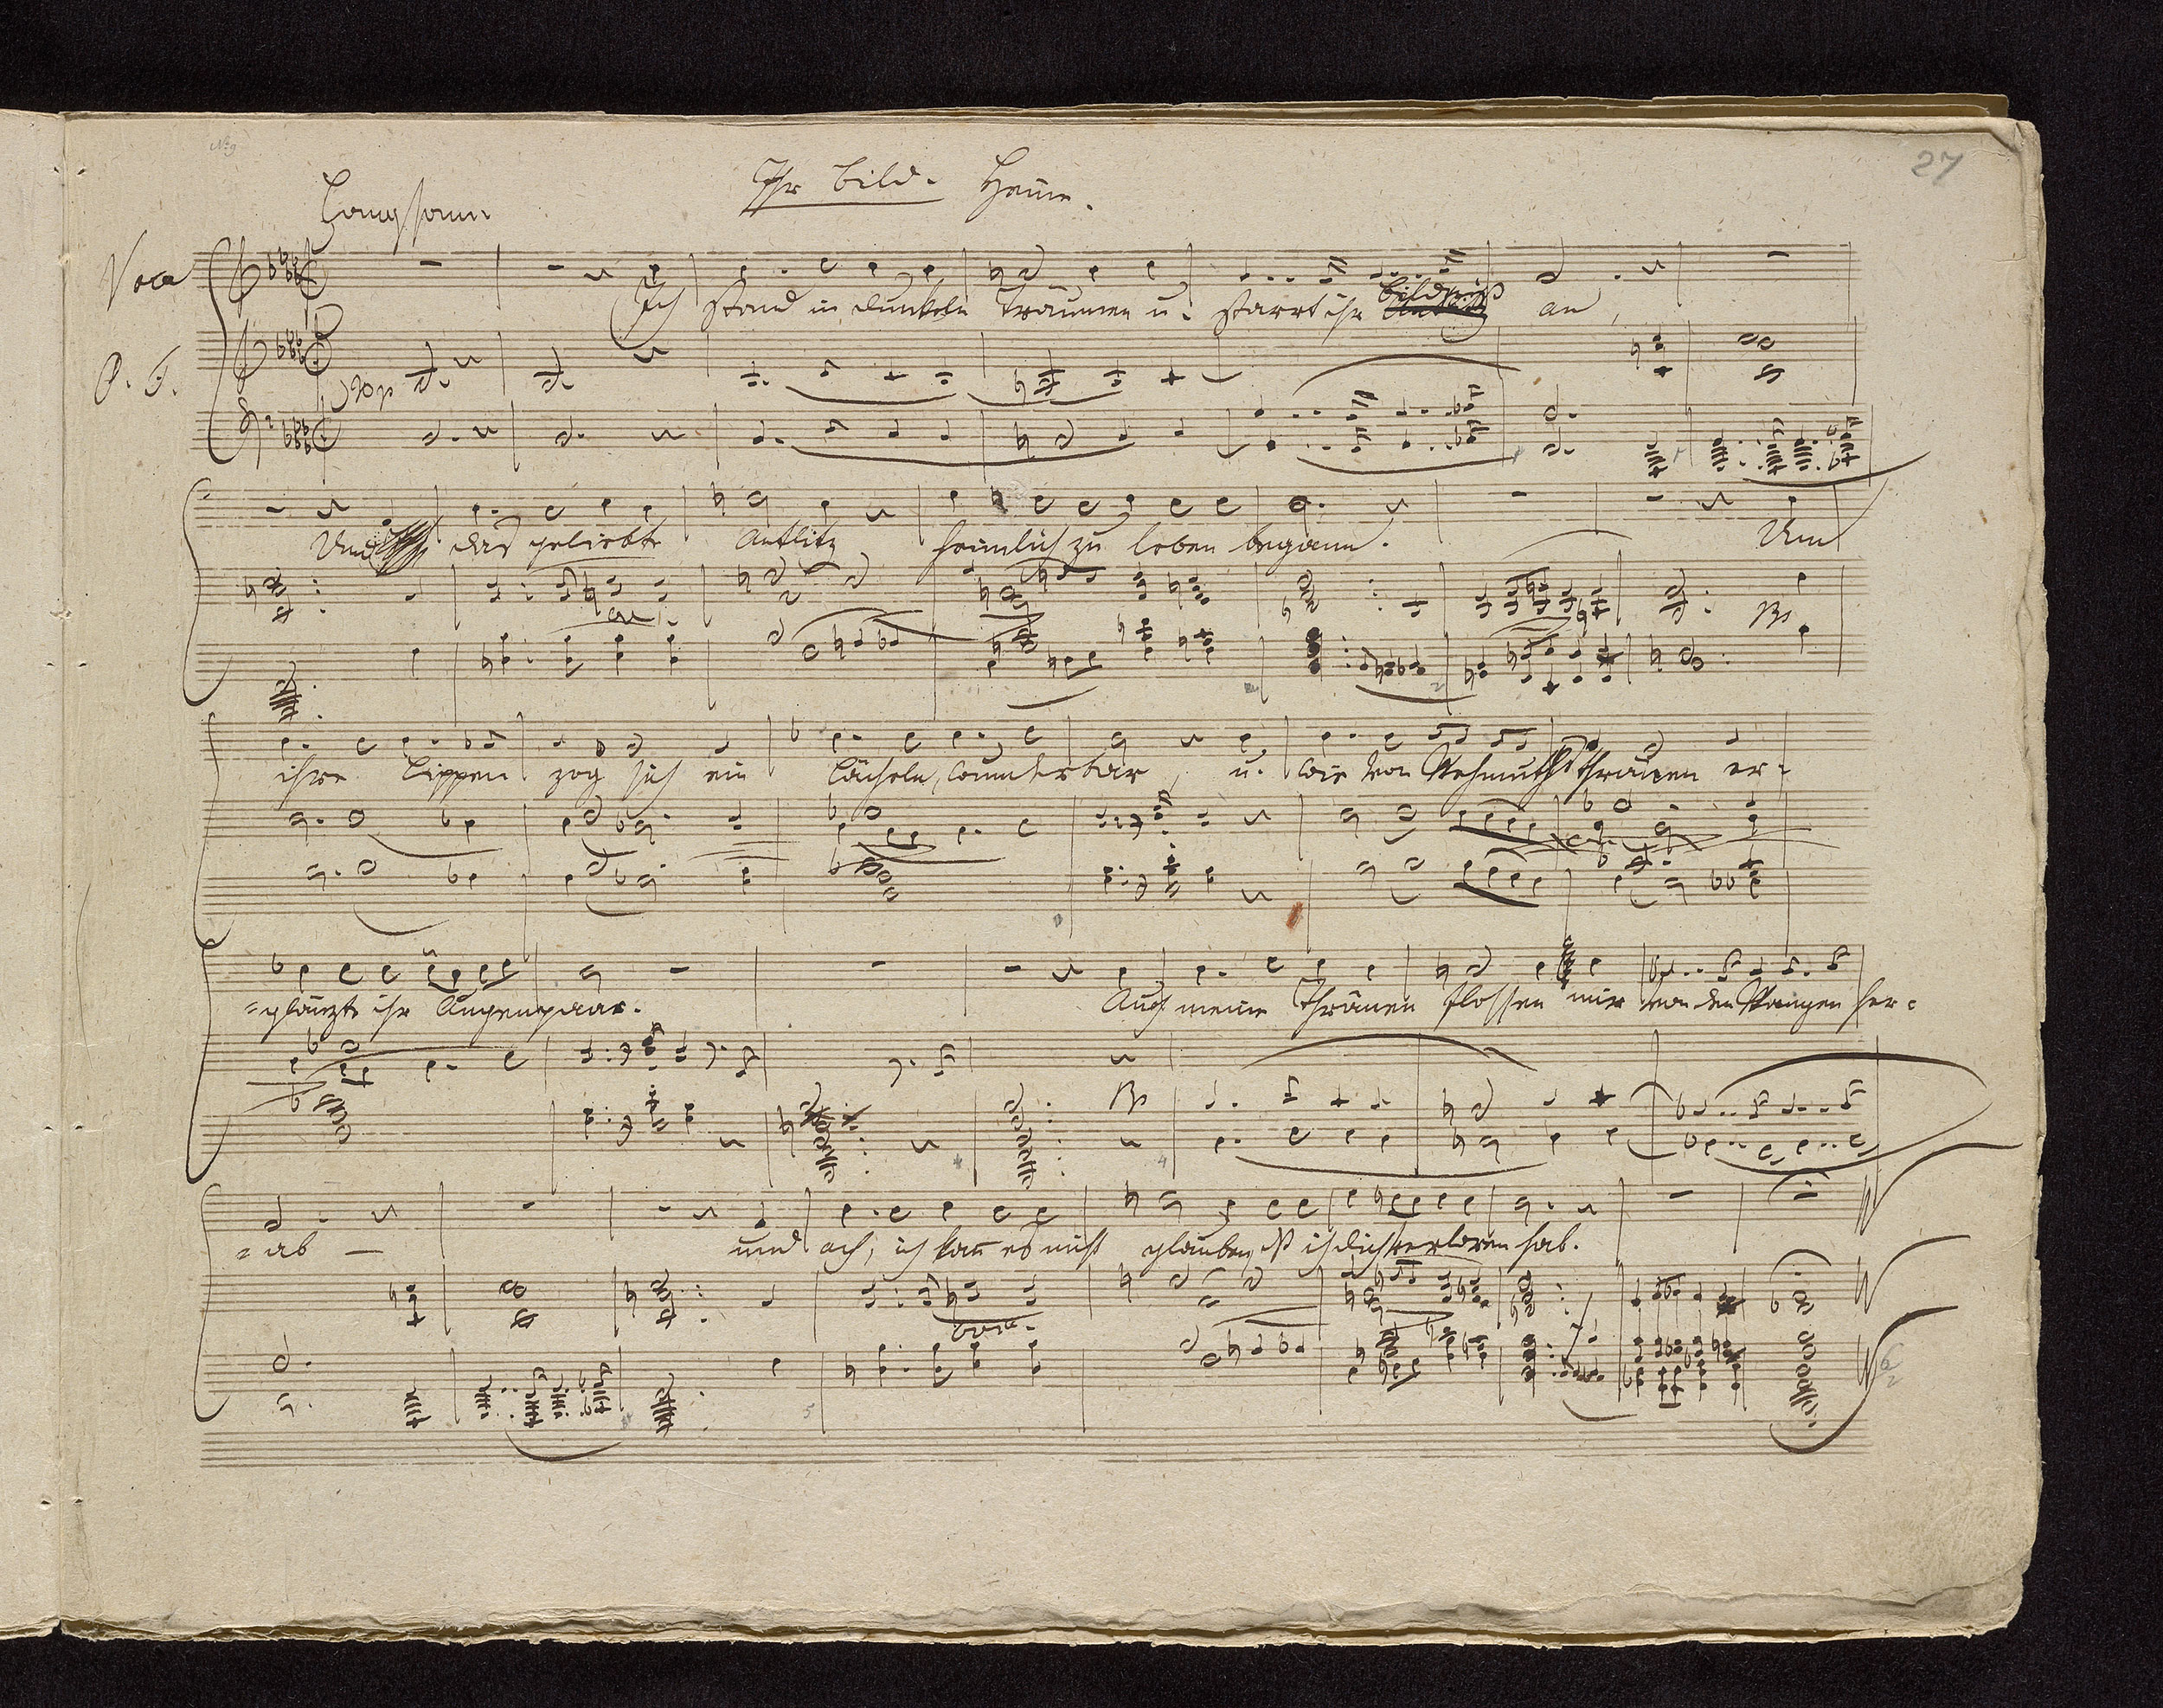 No 9
27
Ihr Bild. Heine.
Langsam
Voce
Ich stand in dunkeln Träumen u. starrt ihr Bildniß an,
P. F.
pp
Und das geliebte Antlitz heimlich zu leben begann. Um
cresc.
ihre Lippen zog sich ein Lächeln, wunderbar, u. wie von Wehmuthsthränen er-
=glänzte ihr Augenpaar. Auch meine Thränen flossen mir von den Wangen her=
=ab — und ach, ich kan̄ es nicht glauben, dß ich dich verloren hab.
cresc.